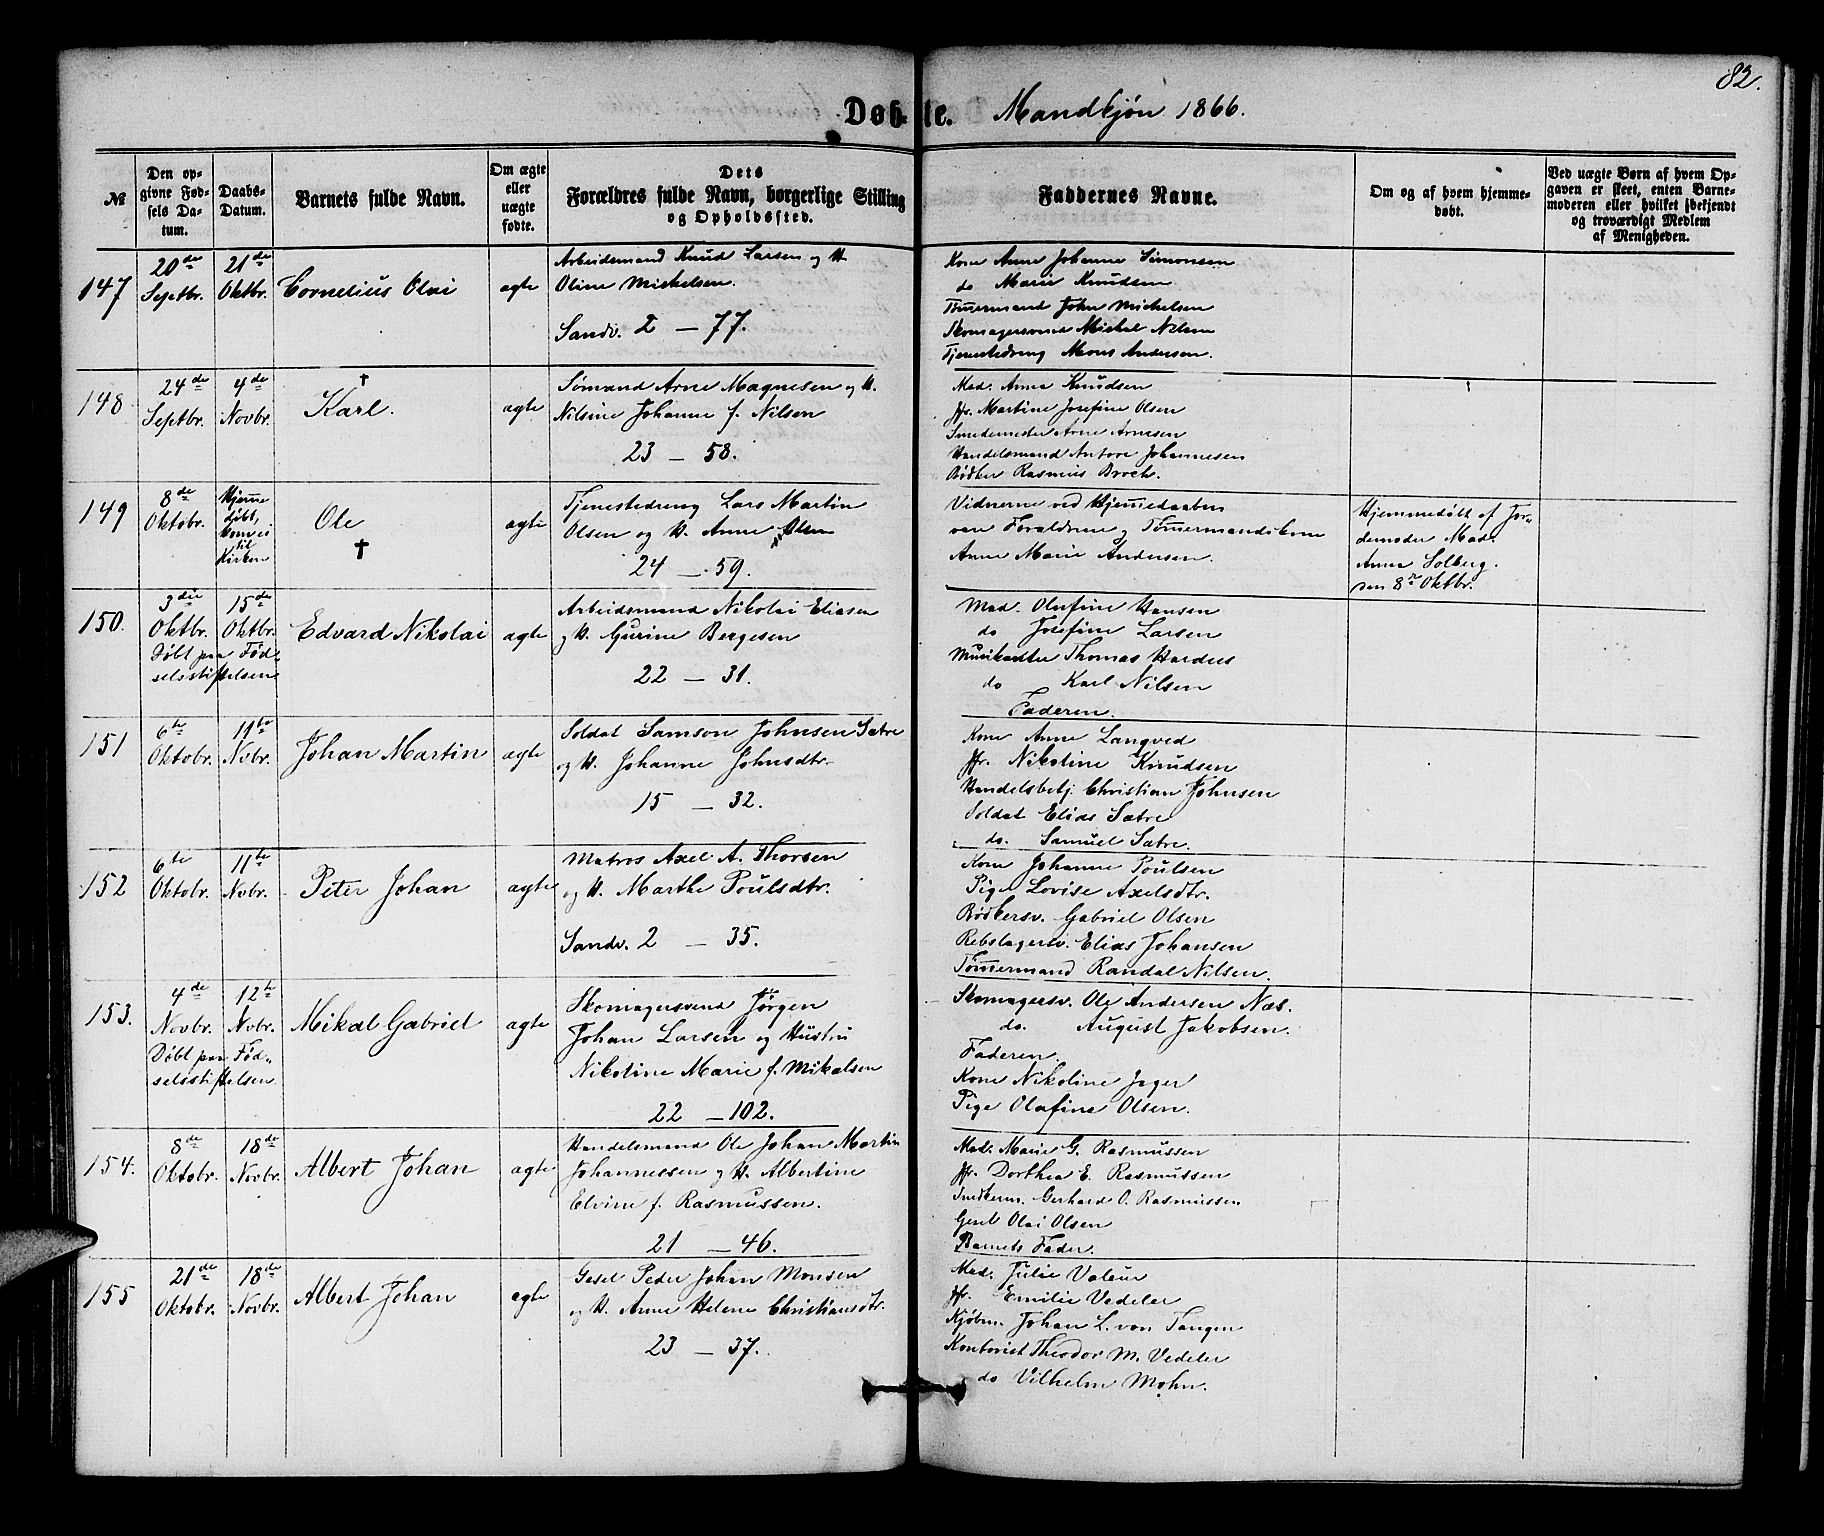 82.
Døbte. Mandkjøn 1866.
№
Den opgivne Fødsels Datum.
Daabs-Datum.
Barnets fulde Navn.
Om ægte eller uægte fødte.
Dets Forældres fulde Navn, borgerlige Stilling og Opholdssted.
Faddernes Navne.
Om og af hvem hjemmedøbt.
Ved uægte Børn af hvem Opgaven er skeet, enten Barnemoderen eller hvilket bekjendt og troværdigt Medlem af Menigheden.
147
20de Septbr.
21de Oktbr.
Cornelius Olai
ægte
Arbeidsmand Knud Larsen og H
Oline Michelsen.
Sandv. 2 - 77.
Kone Anne Johanne Simonsen
do Marie Knudsen
Tømermand John Michelsen
Skomagersvend Michel Nilsen
Tjenestedreng Mons Andersen.
148
24de Septbr.
4de Novbr.
† Karl.
ægte
Sømand Arne Magnesen og H.
Nilsine Johanne f. Nilsen
23 - 58.
Mad. Anna Knudsen
Jfr. Martine Josefine Olsen
Smedemester Arne Arnesen
Handelsmand Antore Johannesen
Bødker Rasmus Broch.
149
8de Oktobr.
Hjemedøbt, kom ei til Kirken
Ole †
ægte
Tjenestedreng Lars Martin
Olsen og H. Anne Olsen
24 - 59.
Vidnerne ved Hjemedaaben
vare Forældrene og Tømermandskone
Anne Marie Andersen.
Hjemmedøbt af Jordemoder Mad.
Anna Solberg.
den 8de Oktbr.
150.
3die Oktbr.
15de Oktbr.
Døbt paa Fødselsstiftelsen
Edvard Nikolai
ægte
Arbeidsmand Nikolai Eliasen
og H. Gurine Bergesen
22 - 31.
Mad. Olufine Hansen
do Josefine Larsen
Musikanter Thomas Hardus
do Karl Nilsen
Faderen.
151
6te Oktobr.
11te Nvbr.
Johan Martin
ægte
Soldat Samson Johnsen Sætre
og H. Johanne Johnsdtr.
15 - 32.
Kone Anne Langved
Jfr. Nikoline Knudsen
Handelsbetj. Christian Johnsen
Soldat Elias Sætre
do. Samuel Sætre.
152
6te Oktobr.
11te Nvbr.
Peter Johan
ægte
Matros Axel A. Thorsen
og H. Marthe Poulsdtr.
Sandv. 2 - 35.
Kone Johanne Poulsen
Pige Lovise Axelsdtr.
Bødkersv. Gabriel Olsen
Rebslagersv. Elias Johansen
Tømermand Randal Nilsen.
153.
4de Novbr.
12te Nvbr.
Døbt paa Fødselsstiftelsen
Mikal Gabriel
ægte
Skomagersvend Jørgen
Johan Larsen og Hustru
Nikoline Marie f. Mikalsen
22 - 102.
Skomagersv. Ole Andersen Næs.
do. August Jakobsen.
Faderen.
Kone Nikoline Jæger
Pige Olafine Olsen.
154.
8de Oktobr.
18de Novbr.
Albert Johan
ægte
Handelsmand Ole Johan Martin
Johannessen og H. Albertine
Elvine f. Rasmussen.
21 - 46.
Mad. Marie G. Rasmussen
Jfr. Dorthea E. Rasmussen
Snedkerm. Gerhard O. Rasmussen
Gesel Olai Olsen
Barnets Fader.
155
21de Oktobr.
18de Novbr.
Albert Johan
ægte
Gesel Peder Johan Monsen
og H. Anne Helene Christiansdtr.
23 - 37.
Mad. Julie Valeur
Jfr. Emilie Vedeler
Kjøbm. Johan L. von Tangen
Kontorist Theodor M. Vedeler
do Vilhelm Mohn.